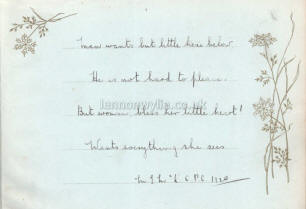 "Man wants but little here below
He is not hard to please.
But woman, bless her little heart!
Wants everything she sees
lennonwylie.co.uk